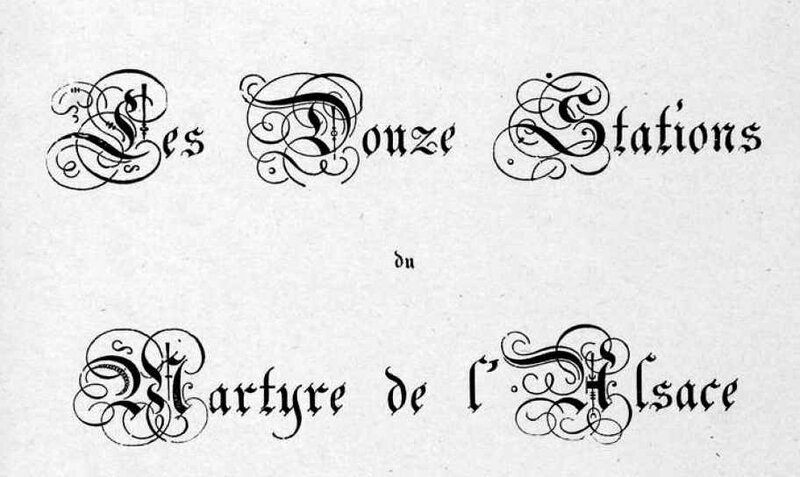 Les Douze Stations
du
Martyre de l'Alsace